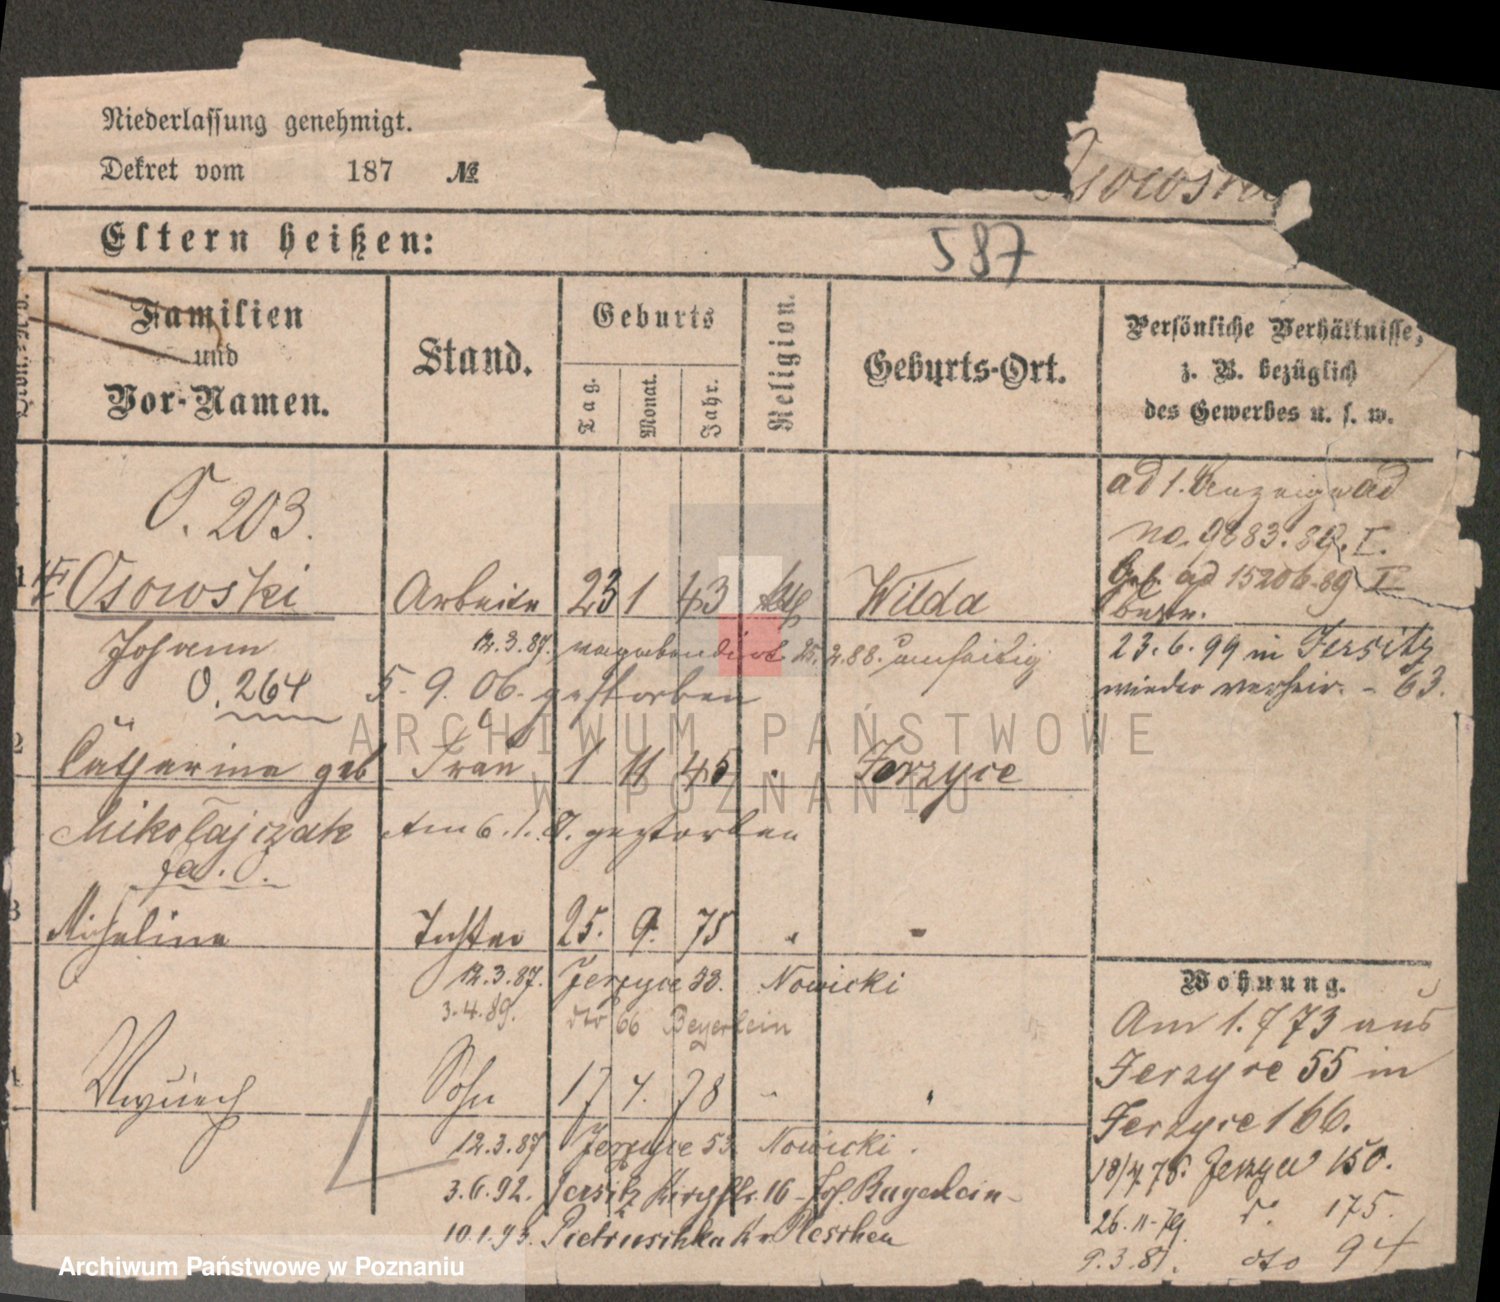 Niederlassung genehmigt.
Dekret vom 187 №
Osowski
Eltern heißen:
587
Familien und Vor-Namen.
Stand.
Geburts
Tag. Monat. Jahr.
Religion.
Geburts-Ort.
Persönliche Verhältnisse,
z. B. bezüglich
des Gewerbes u. s. w.
O. 203.
ad 1. Anzeige ad
no. 9883. 89. I.
ad 15206. 89 I
1 Osowski Arbeiter 23 1 43 kath Wilda
Johann 12.3.87. vagabondirt 25.2.88. umseitig
23.6.99 in Jersitz
O. 264 5. 9. 06. gestorben
wieder verheir. - 63.
2 Catharina geb Frau 1 11 45 Jerzyce
Mikołajczak Am 6. 1. 8. gestorben
ja.
3 Micheline Tochter 25. 9. 75 "
12.3.87. Jerzyce 53. Nowicki
3.4.89. dto 66 Beyerlein
Wohnung.
Am 1. 7 73 aus
Jerzyce 55 in
Jerzyce 166.
18/4 78. Jerzyce 150.
26.11.79. 175.
9.3.81. dto 94
4 Woyciech Sohn 17 4. 78 "
12.3.87 Jerzyce 53 Nowicki.
3.6.92. Jersitz Kirchstr. 16 - Joh. Bayerlein -
10.1.93. Pietruschka Kr Pleschen
ARCHIWUM PAŃSTWOWE
W POZNANIU
Archiwum Państwowe w Poznaniu